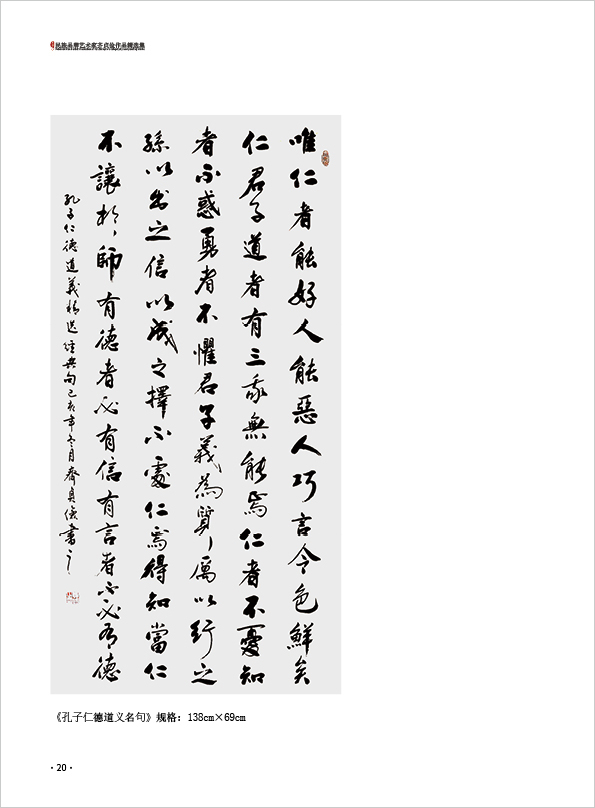 唯仁者能好人能惡人巧言令色鮮矣
仁君子道者有三我無能焉仁者不憂知
者不惑勇者不懼君子義為質以行之
孫以出之信以成之擇不處仁焉得知當仁
不讓於師有德者必有信有言者不必有德
孔子仁德道義精選經典句己亥年冬月齊貞書之
《孔子仁德道义名句》规格：138cm×69cm
· 20 ·